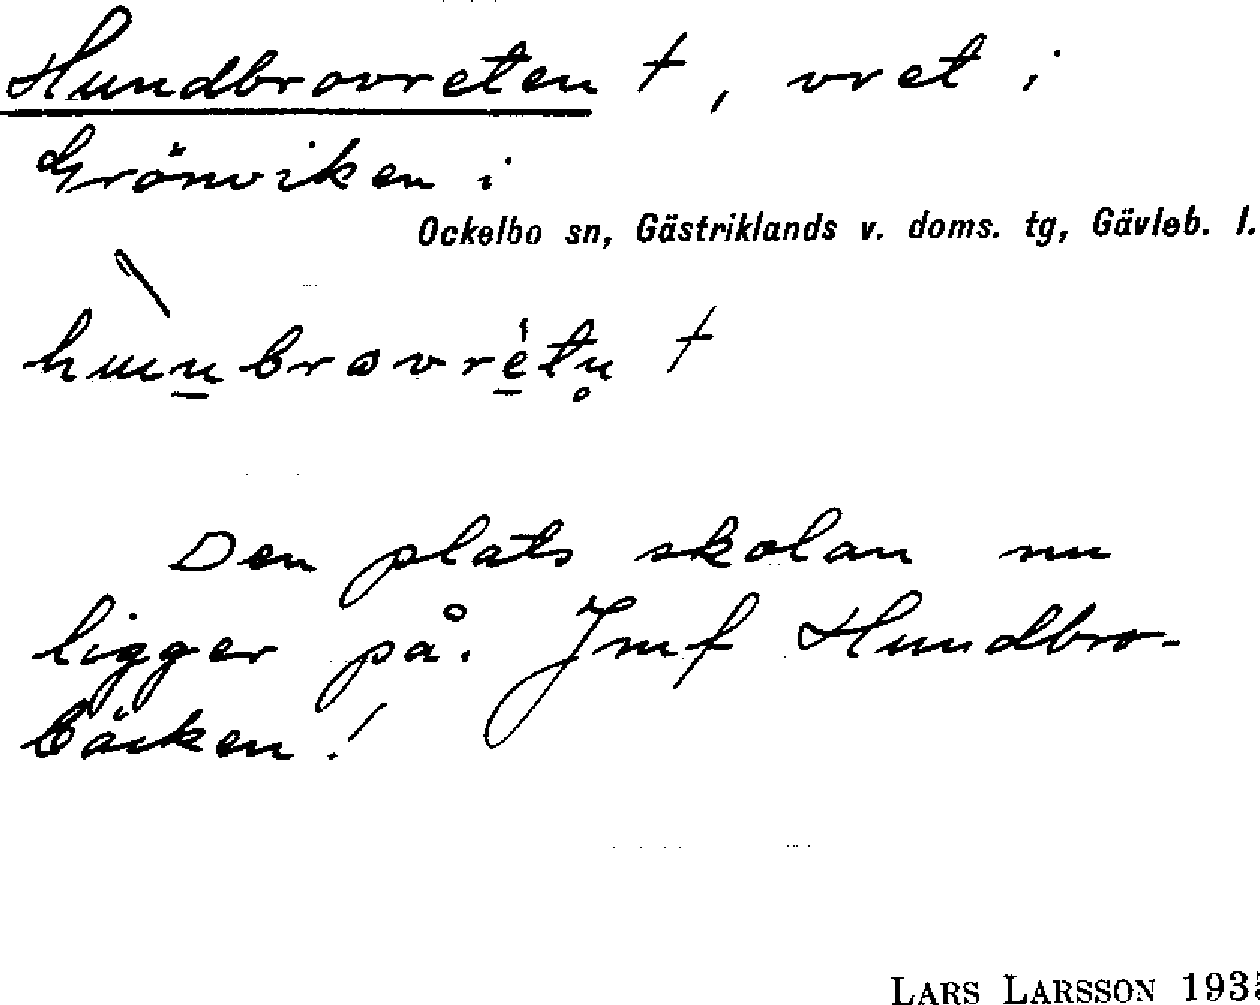 Hundbrovreten †, vret i
Grönviken i
Ockelbo sn, Gästriklands v. doms. tg, Gävleb. l.
Den plats skolan nu
ligger på. Jmf Hundbro-
bäcken!
LARS LARSSON